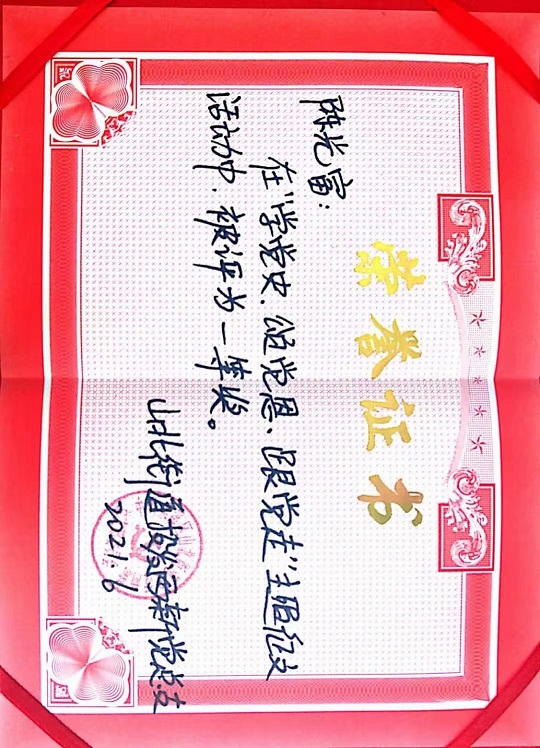 荣誉证书
陈光富:
在"学党史、颂党恩、跟党走"主题征文
活动中,被评为一等奖。
山北街道
两新党总支
2021.6